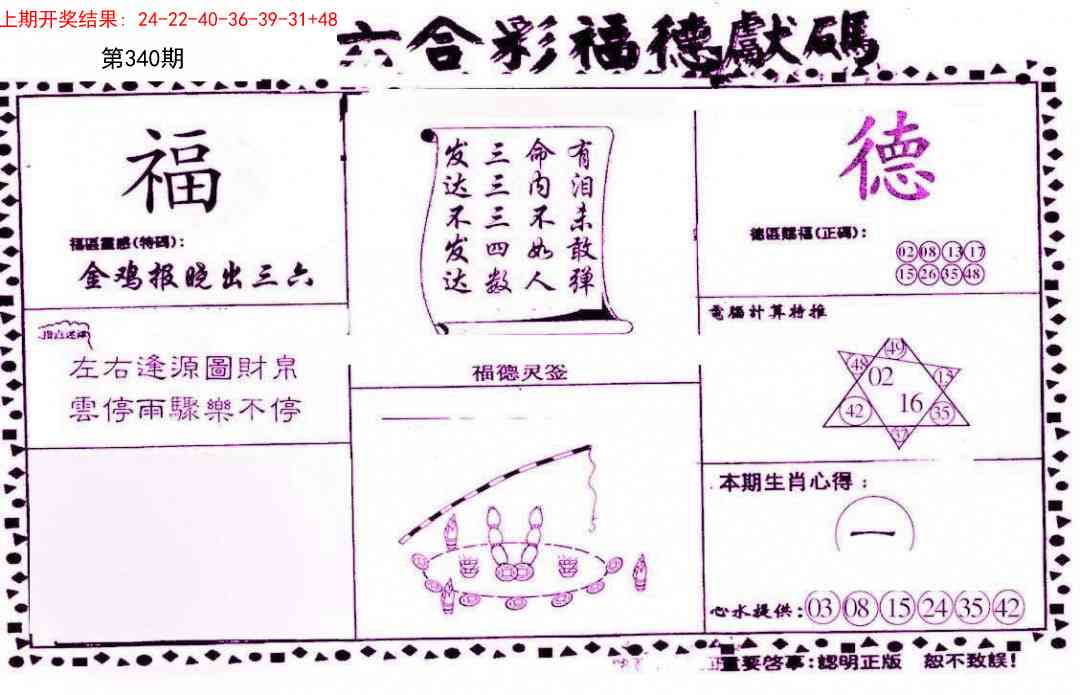 上期开奖结果：24-22-40-36-39-31+48
第340期
六合彩福德獻碼
福
福區靈感(特碼)：
金鸡报晓出三六
左右逢源圖財帛
雲停雨驟樂不停
有泪未敢弹
命内不如人
三三三四数
发达不发达
福德灵签
德
德區賜福(正碼)：
02 08 13 17
15 26 35 48
電腦計算特推
49
48 02 15
42 16 35
37
本期生肖心得：
一
心水提供：03 08 15 24 35 42
重要啓事：認明正版 恕不致誤！